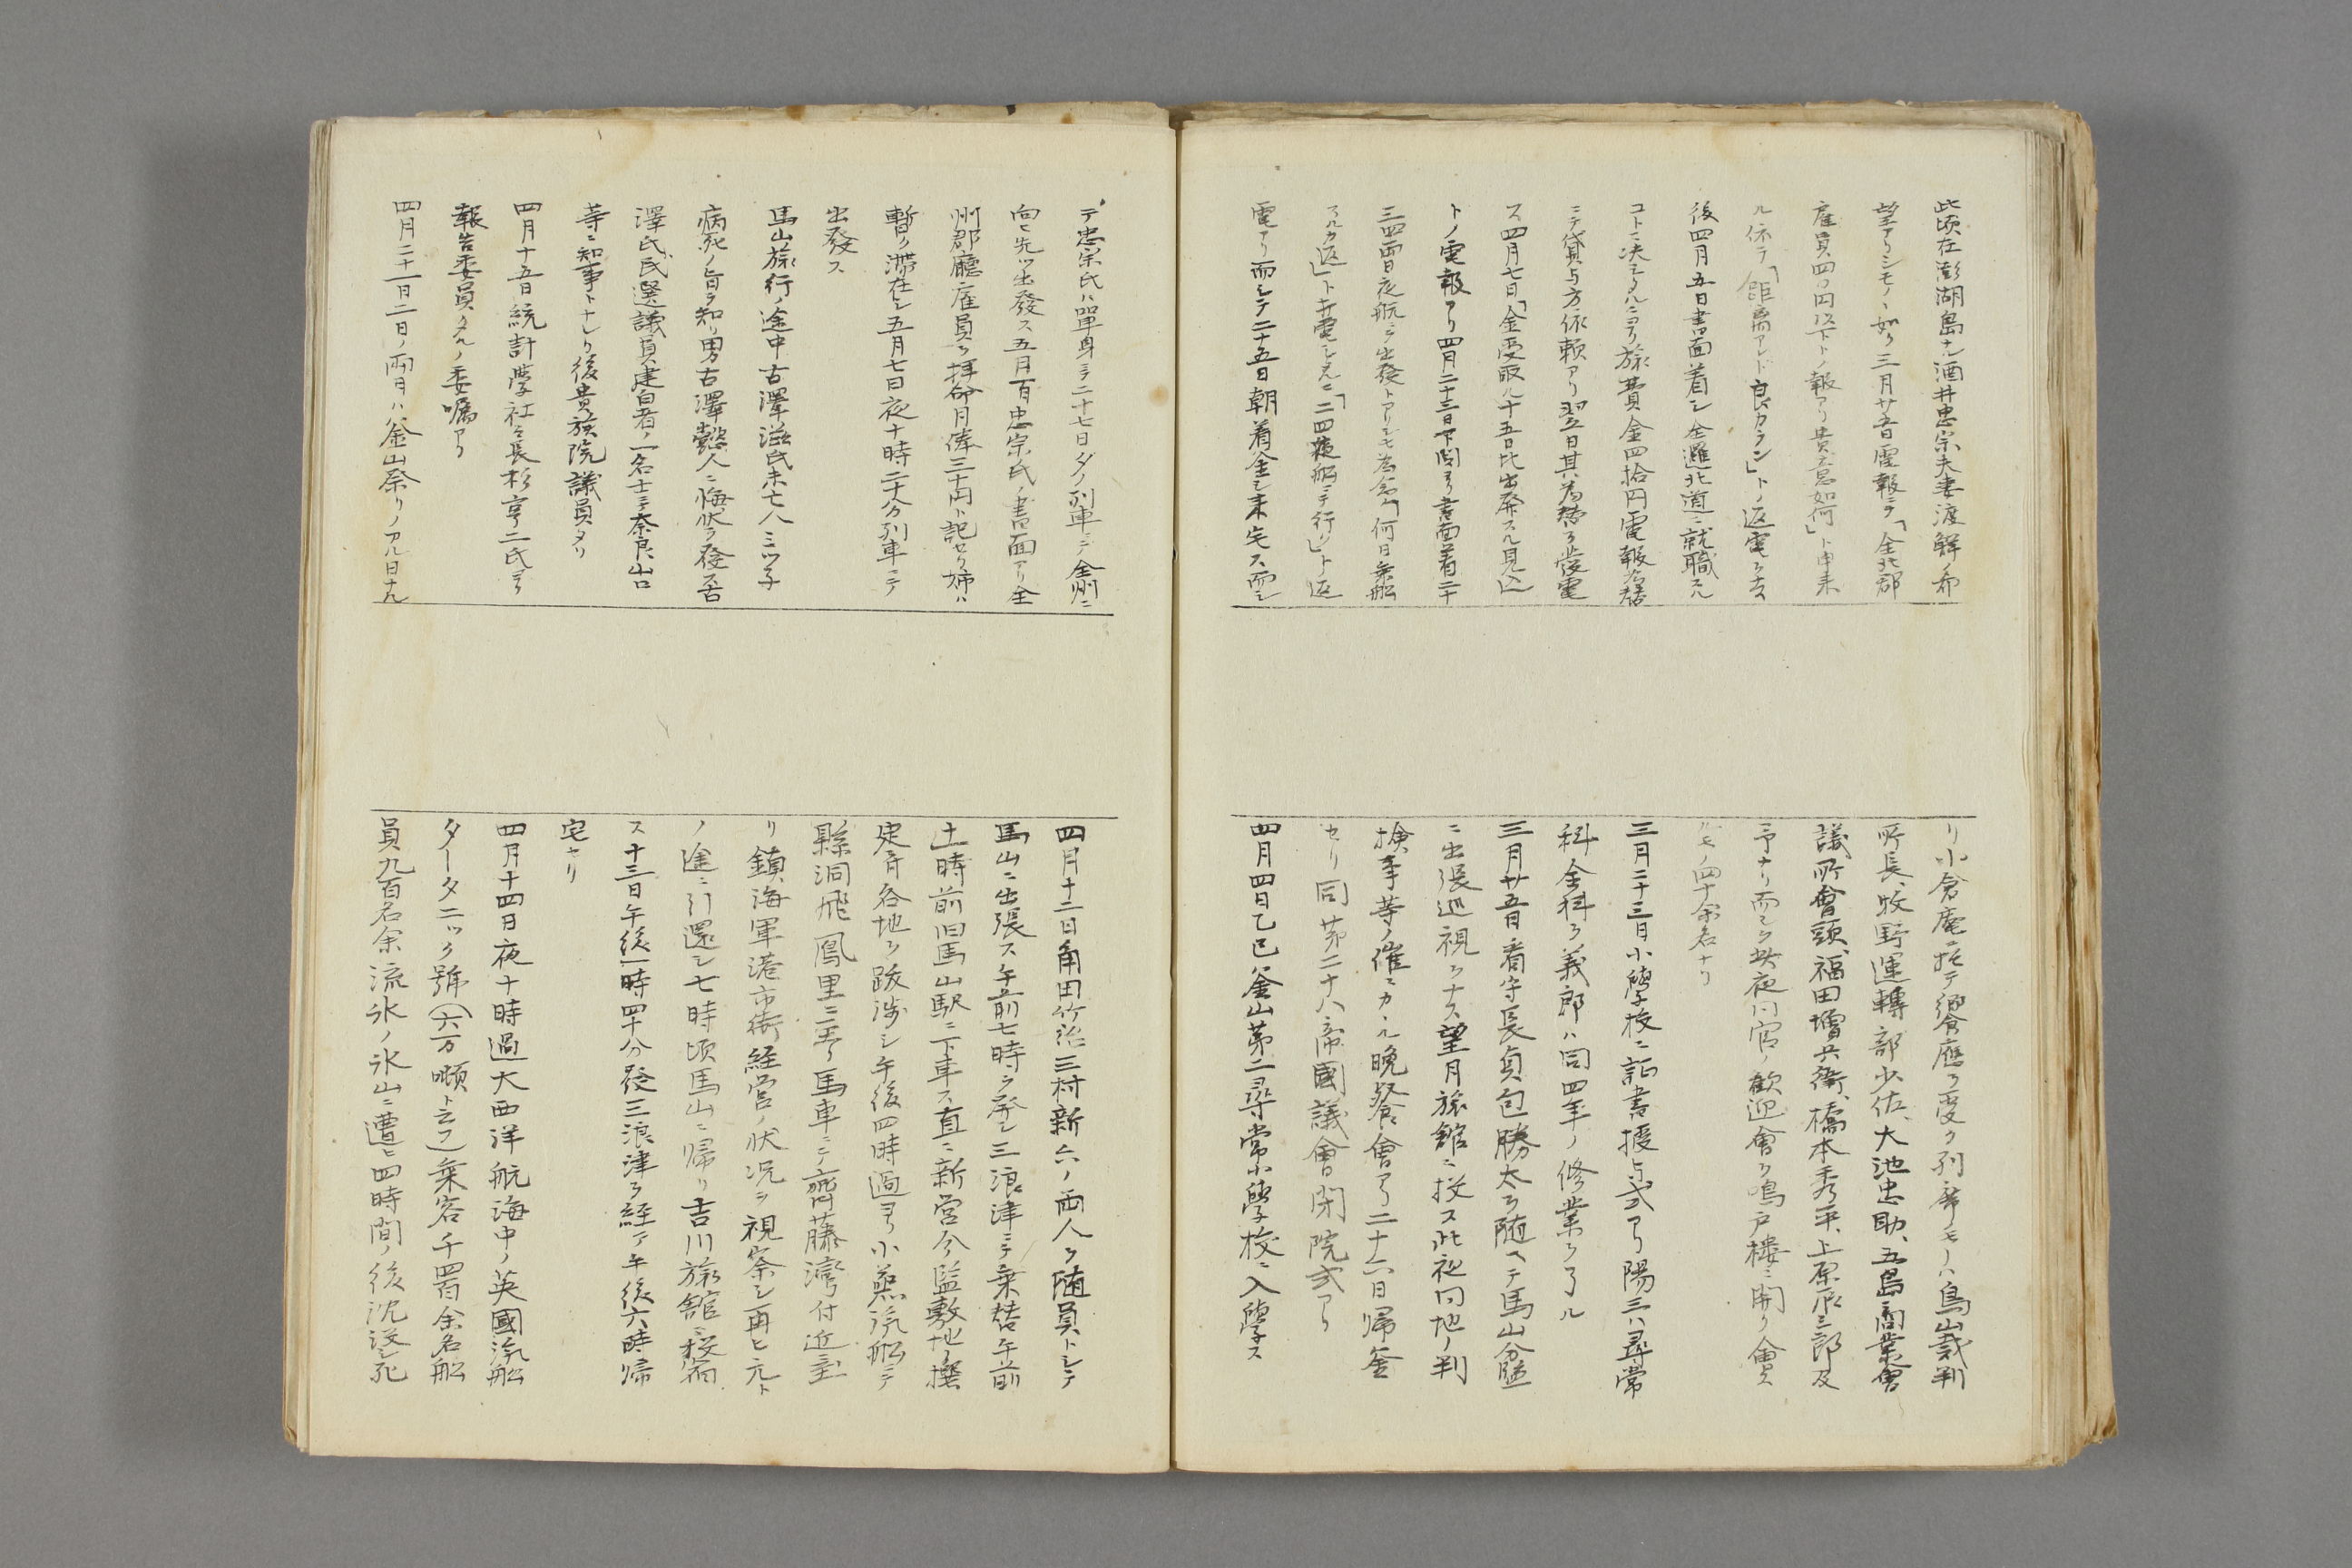 此頃在澎湖島ナル酒井忠宗夫妻渡鮮ノ希
望アリシモノヽ如ク三月廿五日電報ニテ「全北郡
雇員四〇円以下トノ報アリ貴意如何」ト申来
ル依テ「距離アレド良カラン」トノ返電ヲ為ス
後四月五日書面着シ全羅北道ニ就職スル
コトニ决シタルニヨリ旅費金四拾円電報為替
ニテ貸与方依頼アリ翌日其為替ヲ発電
ス四月七日「金受取ル十五日比出発スル見込」
トノ電報アリ四月二十三日下関ヨリ書面着二十
三四両日夜航ニテ出發トアリシモ為念「何日乗船
アルカ返」ト打電シタルニ「二四夜船ニテ行ク」ト返
電アリ而シテ二十五日朝着釜シ来宅ス而シ
リ小倉庵ニ於テ饗應ヲ受ク列席ノモノハ鳥山裁判
所長、牧野運轉部少佐、大池忠助、五島商業會
議所會頭、福田増兵衛、橋本秀平、上原辰三郎及
予ナリ而シテ此夜同官ノ歓迎會ヲ鳴戸楼ニ開ク會ス
ルモノ四十余名ナリ
三月二十三日小學校ニ証書授与式アリ陽三ハ尋常
科全科ヲ義郎ハ同四年ノ修業ヲ了ル
三月廿五日看守長貞包勝太ヲ随ヘテ馬山分監
ニ出張巡視ヲナス望月旅館ニ投ス此夜同地ノ判
検事等ノ催ニカヽル晩餐會アリ二十六日帰釜
セリ同第二十八帝國議會閉院式アリ
四月四日乙巳釜山第二尋常小學校ニ入學ス
テ忠宗氏ハ單身ニテ二十七日夕ノ列車ニテ全州ニ
向ヒ先ツ出發ス五月一日忠宗氏ノ書面アリ全
州郡廳雇員ヲ拝命月俸三十円ト記セリ姉ハ
暫ク滞在シ五月七日夜十時二十分列車ニテ
出發ス
馬山旅行ノ途中古澤滋氏未亡人ミツ子
病死ノ旨ヲ知リ男古澤懿人ニ悔状ヲ發ス古
澤氏ハ民選議員建白者ノ一名士ニテ奈良山口
等ニ知事トナレリ後貴族院議員タリ
四月十五日統計學社々長杉亨二氏ヨリ
報告委員タルノ委嘱アリ
四月二十一日二日ノ両日ハ釜山祭リノアル日ナル
四月十二日角田竹治三村新六ノ両人ヲ随員トシテ
馬山ニ出張ス午前七時ヲ発シ三浪津ニテ乗替午前
十一時前旧馬山駅ニ下車ス直ニ新営分監敷地ノ撰
定ノ為各地ヲ跋渉シ午後四時過ヨリ小蒸汽船ニテ
縣洞飛鳳里ニ至リ馬車ニテ齊藤灣付近ニ至
リ鎮海軍港市街経営ノ状况ヲ視察シ再ヒ元ト
ノ途ニ引還シ七時頃馬山ニ帰リ吉川旅館ニ投宿
ス十三日午後一時四十分發三浪津ヲ経テ午後六時帰
宅セリ
四月十四日夜十時過大西洋航海中ノ英國汽船
タータニック號(六万噸ト云フ)乗客千四百余名船
員九百名余流氷ノ氷山ニ遭ヒ四時間ノ後沈没シ死